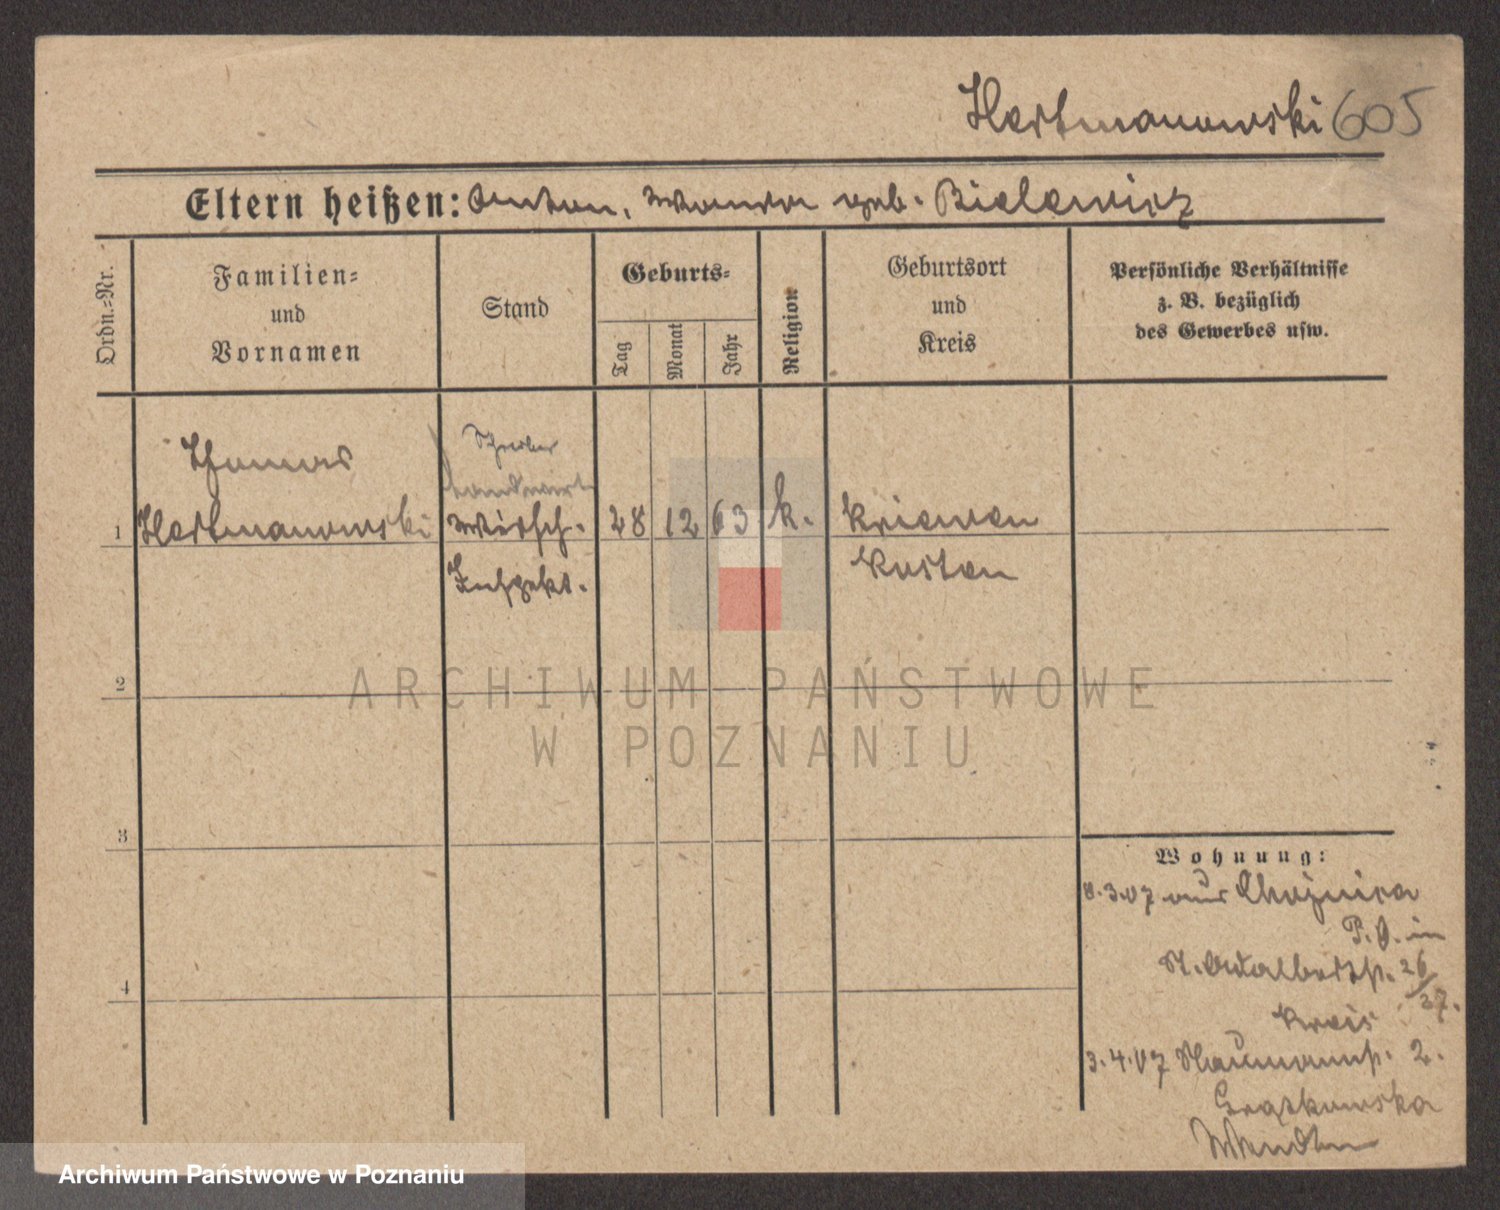 Hartmanowski 605
Eltern heißen: Anton, Wanda geb. Bielewicz
Ordn.-Nr.
Familien-
und
Vornamen
Stand
Geburts-
Tag
Monat
Jahr
Religion
Geburtsort
und
Kreis
Persönliche Verhältnisse
z. B. bezüglich
des Gewerbes usw.
Thomas
Schreiber
Landwirt
1 Hartmanowski Wirtsch. 28 12 63 k. Kriewen
Inspekt. Kosten
2
3
4
ARCHIWUM PAŃSTWOWE
W POZNANIU
Wohnung:
8.3.07 aus Chojnica
P. O. in
St. Adalbertstr. 26/27.
3.4.07 Naumannstr. 2.
Archiwum Państwowe w Poznaniu